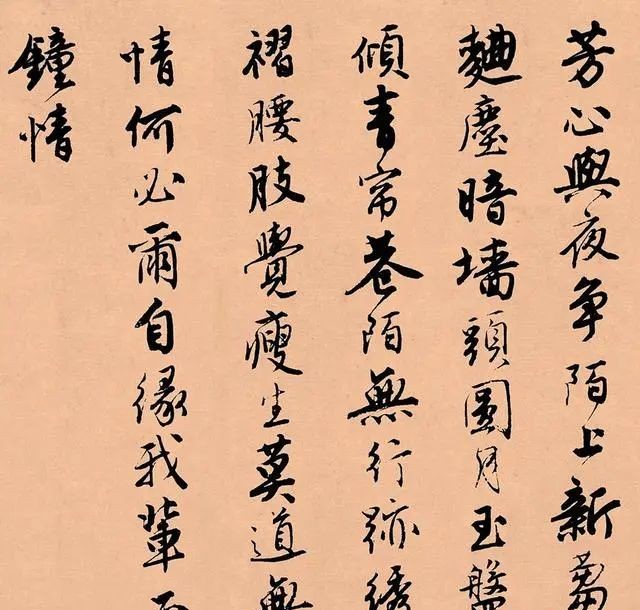 芳心與夜争陌上新
麯塵暗墻頭圓月玉盤
傾青帘巷陌無行跡綉
褶腰肢覺瘦生莫道無
情何必爾自緣我輩
鐘情